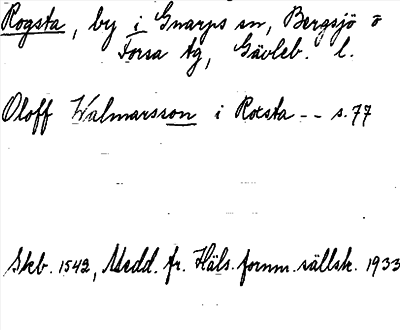 Rogsta, by i Gnarps sn, Bergsjö o
Forsa tg, Gävleb. l.
Oloff Walmarsson i Rocsta -- s. 77
Skb. 1542, Medd. fr. Häls. fornm. sällsk. 1933